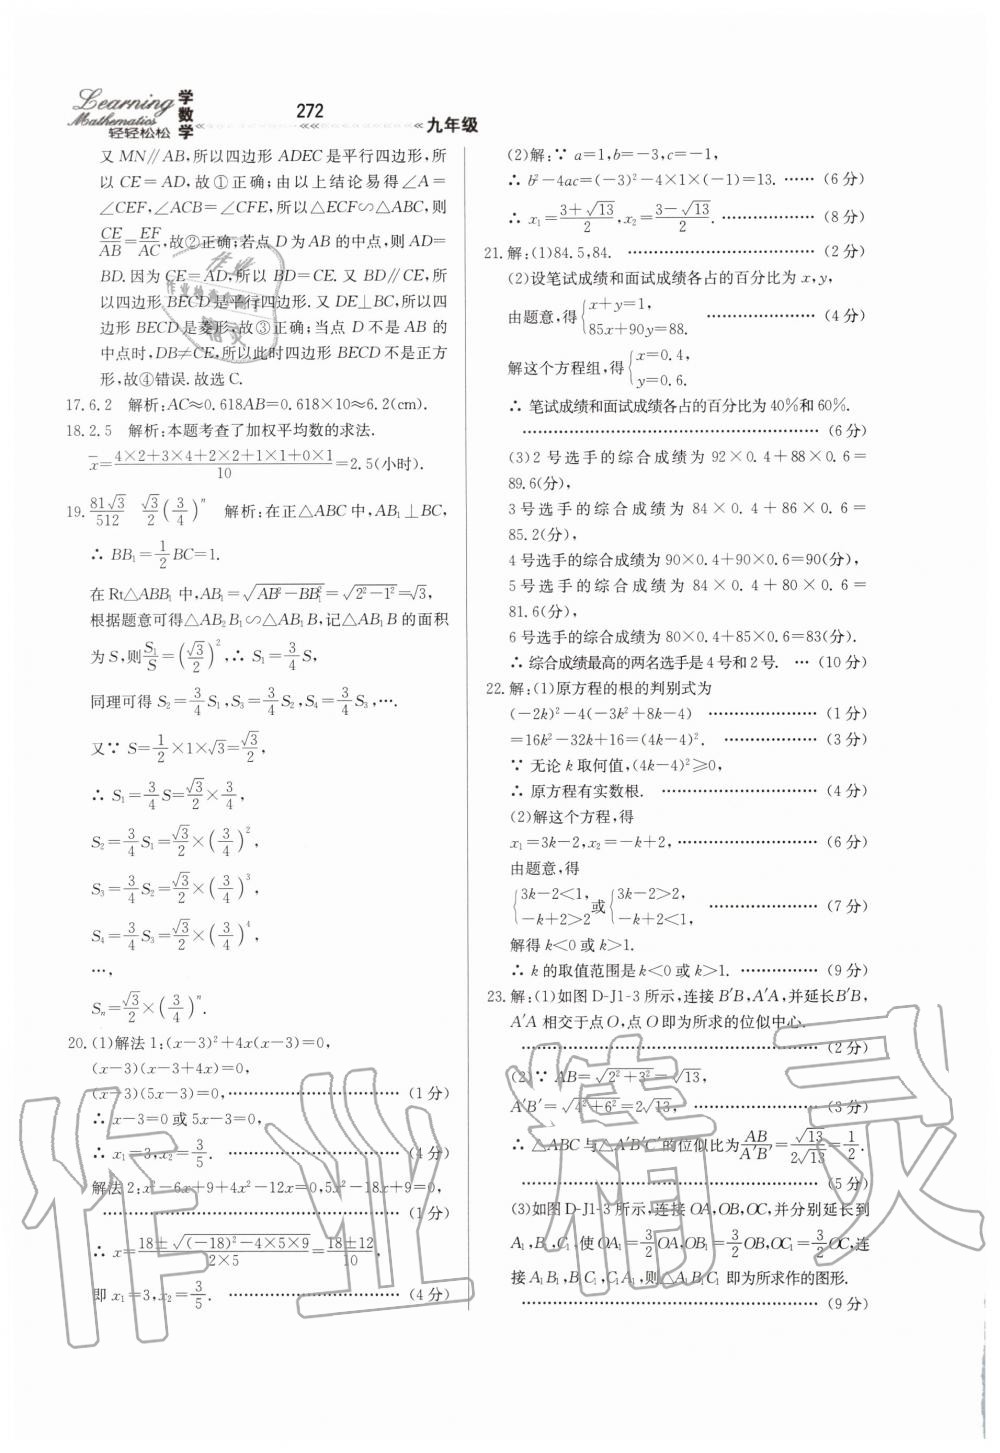 Learning
Mathematics
轻轻松松
学数学
272
九年级
又 MN∥AB,所以四边形 ADEC 是平行四边形,所
以 CE=AD,故①正确;由以上结论易得∠A=
∠CEF,∠ACB=∠CFE,所以△ECF∽△ABC,则
CE/AB=EF/AC,故②正确;若点 D 为 AB 的中点,则 AD=
BD.因为 CE=AD,所以 BD=CE.又 BD∥CE,所
以四边形 BECD 是平行四边形.又 DE⊥BC,所以四
边形 BECD 是菱形,故③正确;当点 D 不是 AB 的
中点时,DB≠CE,所以此时四边形 BECD 不是正方
形,故④错误.故选 C.
17.6.2 解析:AC≈0.618AB=0.618×10≈6.2(cm).
18.2.5 解析:本题考查了加权平均数的求法.
x̄=(4×2+3×4+2×2+1×1+0×1)/10=2.5(小时).
19.81√3/512 √3/2(3/4)ⁿ 解析:在正△ABC 中,AB₁⊥BC,
∴ BB₁=1/2BC=1.
在 Rt△ABB₁ 中,AB₁=√(AB²-BB₁²)=√(2²-1²)=√3,
根据题意可得△AB₂B₁∽△AB₁B,记△AB₁B 的面积
为 S,则S₁/S=(√3/2)²,∴ S₁=3/4S,
同理可得 S₂=3/4S₁,S₃=3/4S₂,S₄=3/4S₃,….
又∵ S=1/2×1×√3=√3/2,
∴ S₁=3/4S=√3/2×3/4,
S₂=3/4S₁=√3/2×(3/4)²,
S₃=3/4S₂=√3/2×(3/4)³,
S₄=3/4S₃=√3/2×(3/4)⁴,
…,
Sₙ=√3/2×(3/4)ⁿ.
20.(1)解法 1:(x-3)²+4x(x-3)=0,
(x-3)(x-3+4x)=0,
(x-3)(5x-3)=0,………………………… (1 分)
∴ x-3=0 或 5x-3=0,
∴ x₁=3,x₂=3/5. ………………………… (4 分)
解法 2:x²-6x+9+4x²-12x=0,5x²-18x+9=0,
………………………………………… (1 分)
∴ x=(18±√((-18)²-4×5×9))/(2×5)=(18±12)/10,
即 x₁=3,x₂=3/5. ………………………… (4 分)
(2)解:∵ a=1,b=-3,c=-1,
∴ b²-4ac=(-3)²-4×1×(-1)=13. …… (6 分)
∴ x₁=(3+√13)/2,x₂=(3-√13)/2. ……………… (8 分)
21.解:(1)84.5,84. ……………………………… (2 分)
(2)设笔试成绩和面试成绩各占的百分比为 x,y,
由题意,得{x+y=1, 85x+90y=88. ………………… (4 分)
解这个方程组,得{x=0.4, y=0.6.
∴ 笔试成绩和面试成绩各占的百分比为 40%和 60%.
………………………………………………… (6 分)
(3)2 号选手的综合成绩为 92×0.4+88×0.6=
89.6(分),
3 号选手的综合成绩为 84×0.4+86×0.6=
85.2(分),
4 号选手的综合成绩为 90×0.4+90×0.6=90(分),
5 号选手的综合成绩为 84×0.4+80×0.6=
81.6(分),
6 号选手的综合成绩为 80×0.4+85×0.6=83(分).
∴ 综合成绩最高的两名选手是 4 号和 2 号. … (10 分)
22.解:(1)原方程的根的判别式为
(-2k)²-4(-3k²+8k-4) ………………… (1 分)
=16k²-32k+16=(4k-4)². ……………… (3 分)
∵ 无论 k 取何值,(4k-4)²≥0,
∴ 原方程有实数根. ………………………… (4 分)
(2)解这个方程,得
x₁=3k-2,x₂=-k+2,……………………… (6 分)
由题意,得
{3k-2<1, -k+2>2或{3k-2>2, -k+2<1, ………………… (7 分)
解得 k<0 或 k>1.
∴ k 的取值范围是 k<0 或 k>1. …………… (9 分)
23.解:(1)如图 D-J1-3 所示,连接 B′B,A′A,并延长B′B,
A′A 相交于点 O,点 O 即为所求的位似中心.
………………………………………………… (2 分)
(2)∵ AB=√(2²+3²)=√13,
A′B′=√(4²+6²)=2√13, …………………… (3 分)
∴ △ABC 与△A′B′C′的位似比为AB/A′B′=√13/2√13=1/2.
………………………………………………… (5 分)
(3)如图 D-J1-3 所示,连接 OA,OB,OC,并分别延长到
A₁,B₁,C₁,使 OA₁=3/2OA,OB₁=3/2OB,OC₁=3/2OC,连
接 A₁B₁,B₁C₁,C₁A₁,则△A₁B₁C₁ 即为所求作的图形.
………………………………………………… (9 分)
作业精灵